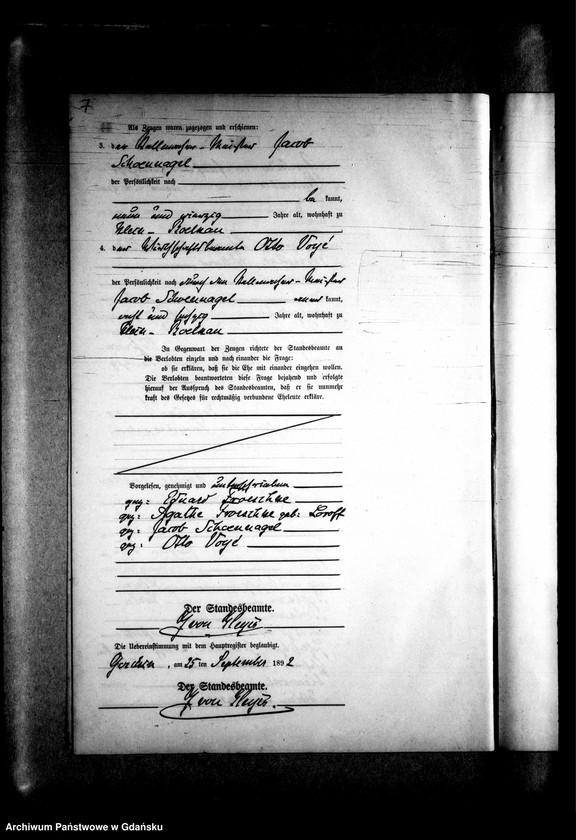 7
Als Zeugen waren zugezogen und erschienen:
3. der Stellmacher-Meister Jacob
Schoennagel
der Persönlichkeit nach
be kannt,
neun und vierzig Jahre alt, wohnhaft zu
Klein-
4. der Wirthschaftsbeamte Otto Voyé
der Persönlichkeit nach durch den Stellmacher-Meister
Jacob Schoennagel kannt,
und Jahre alt, wohnhaft zu
Klein-
In Gegenwart der Zeugen richtete der Standesbeamte an
die Verlobten einzeln und nach einander die Frage:
ob sie erklären, daß sie die Ehe mit einander eingehen wollen.
Die Verlobten beantworteten diese Frage bejahend und erfolgte
hierauf der Ausspruch des Standesbeamten, daß er sie nunmehr
kraft des Gesetzes für rechtmäßig verbundene Eheleute erkläre.
Vorgelesen, genehmigt und unterschrieben
gez: Eduard Froeschke
gez: Agathe Froeschke geb: Loroff
gez: Jacob Schoennagel
gez: Otto Voyé
Der Standesbeamte.
von
Die Uebereinstimmung mit dem Hauptregister beglaubigt.
, am 25 ten September 1892
Der Standesbeamte.
von
Archiwum Państwowe w Gdańsku